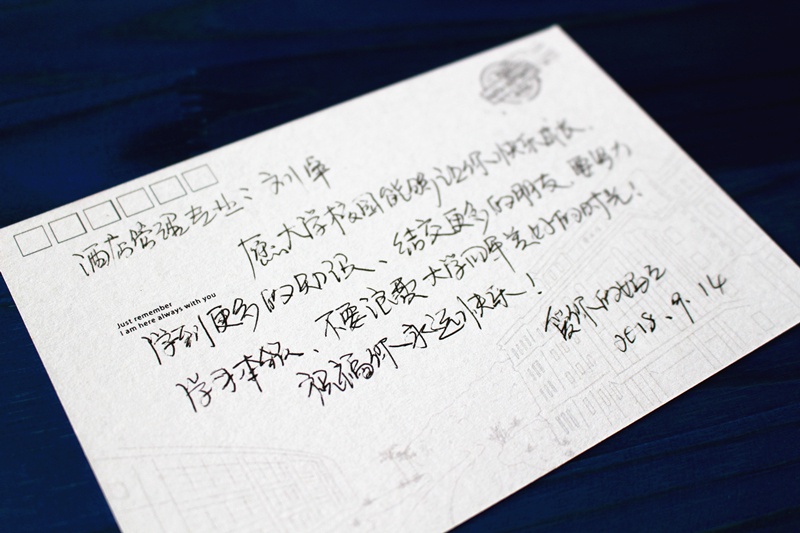 酒店管理专业:刘
愿大学校园能够让你快乐成长、
Just remember
I am here always with you
学到更多的知识、结交更多的朋友、要努力
学本领、不要浪费大学四年美好的时光!
祝福你永远快乐!
爱你的妈妈
2018.9.14